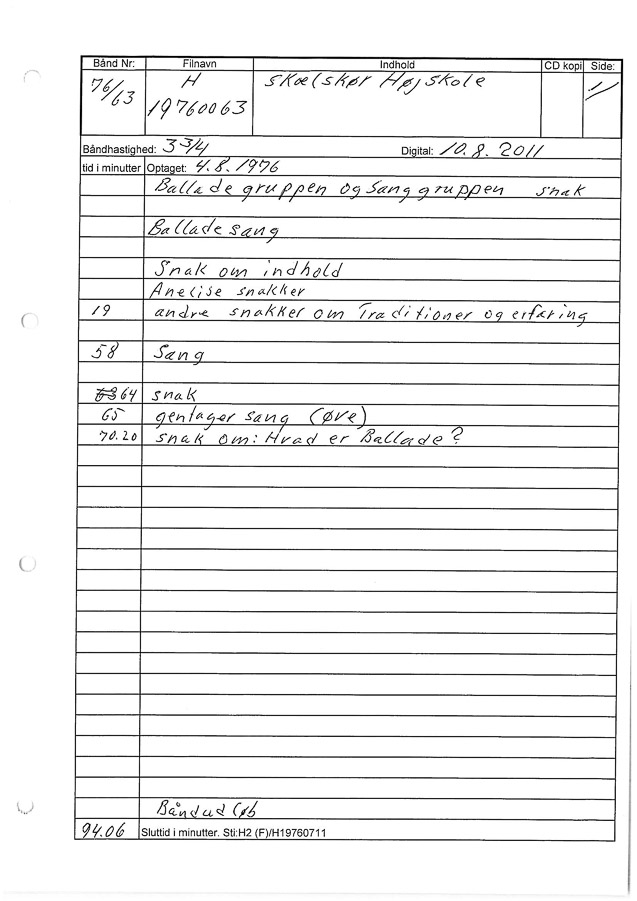 Bånd Nr: Filnavn Indhold CD kopi Side:
76/63 H Skælskør Højskole 1/
19760063
Båndhastighed: 3 3/4 Digital: 10.8.2011
tid i minutter Optaget: 4.8.1976
Ballade gruppen og Sanggruppen snak
Ballade sang
Snak om indhold
Anelise snakker
19 andre snakker om Traditioner og erfaring
58 Sang
64 snak
65 gentager sang (øve)
70.20 snak om: Hvad er Ballade?
Båndudløb
94.06 Sluttid i minutter. Sti:H2 (F)/H19760711